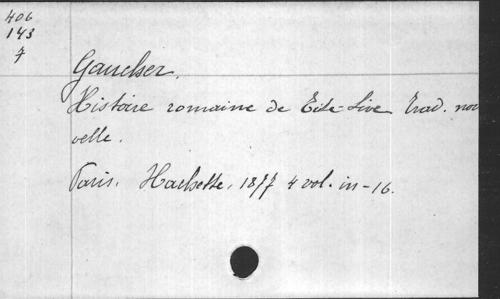 406
143
7
Gaucher.
Histoire romaine de Tite-Live Trad. nou
velle.
Paris. Hachette, 1877 4 vol. in-16.